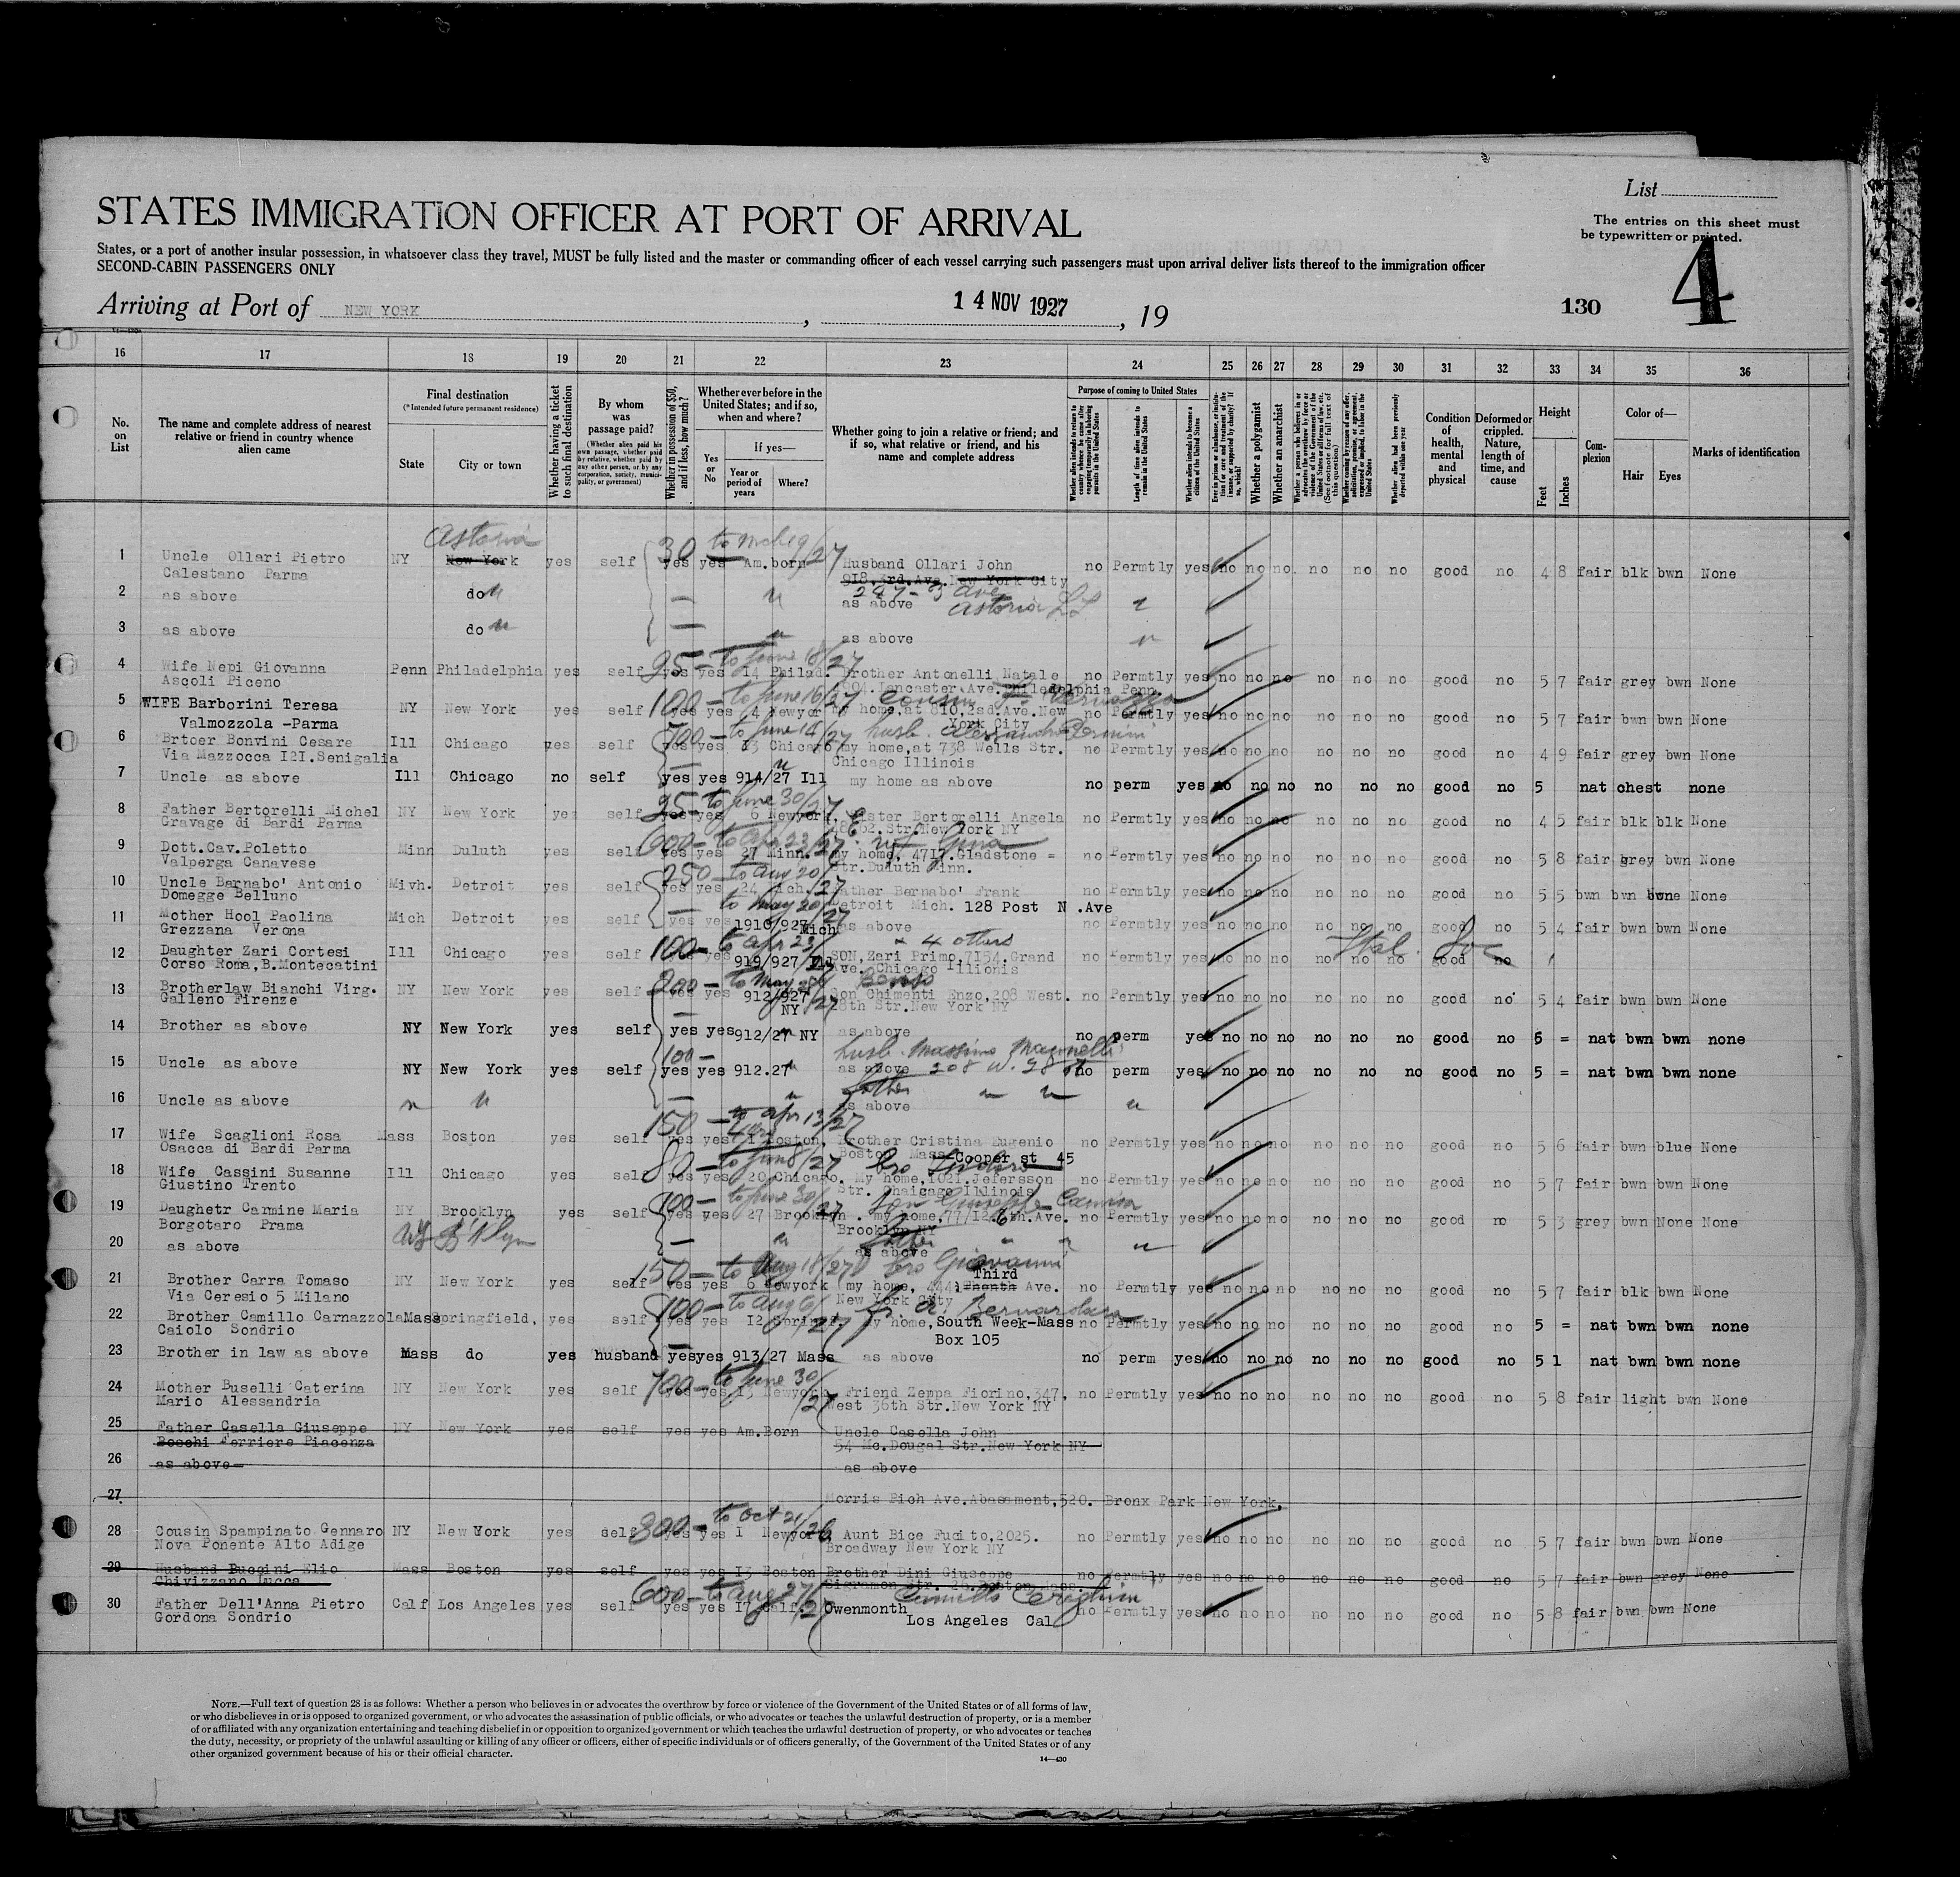 List
The entries on this sheet must
be typewritten or printed.
STATES IMMIGRATION OFFICER AT PORT OF ARRIVAL
4
States, or a port of another insular possession, in whatsoever class they travel, MUST be fully listed and the master or commanding officer of each vessel carrying such passengers must upon arrival deliver lists thereof to the immigration officer
SECOND-CABIN PASSENGERS ONLY
Arriving at Port of NEW YORK, 14 NOV 1927, 19
130
16 17 18 19 20 21 22 23 24 25 26 27 28 29 30 31 32 33 34 35 36
No. on List
The name and complete address of nearest relative or friend in country whence alien came
Final destination
(*Intended future permanent residence)
State
City or town
Whether having a ticket to such final destination
By whom was passage paid?
(Whether alien paid his own passage, whether paid by relative, whether paid by any other person, or by any corporation, society, municipality, or government)
Whether in possession of $50, and if less, how much?
Whether ever before in the United States; and if so, when and where?
Yes or No
If yes—
Year or period of years
Where?
Whether going to join a relative or friend; and if so, what relative or friend, and his name and complete address
Purpose of coming to United States
Length of time alien intends to remain in the United States
Whether alien intends to become a citizen of the United States
Whether a polygamist
Whether an anarchist
Condition of health, mental and physical
Deformed or crippled. Nature, length of time, and cause
Height
Feet
Inches
Complexion
Color of—
Hair
Eyes
Marks of identification
Astoria
30 to Mch 19/27
1 Uncle Ollari Pietro NY New York yes self yes yes Am.born Husband Ollari John no Permtly yes no no no no no no good no 4 8 fair blk bwn None
Calestano Parma 918.3rd.Ave.New York City
247-3 Ave
2 as above do as above Astoria LI
3 as above do as above
25 to June 18/27
4 Wife Nepi Giovanna Penn Philadelphia yes self yes yes 14 Philad. Brother Antonelli Natale no Permtly yes no no no no no no good no 5 7 fair grey bwn None
Ascoli Piceno Lancaster Ave.Philadelphia Penn.
100 to June 16/27 cousin
5 WIFE Barborini Teresa NY New York yes self yes yes 4 Newyor my home,at 810,2sd.Ave.New no Permtly yes no no no no no no good no 5 7 fair bwn bwn None
Valmozzola -Parma York City
700 to June 14/27 husb. Alessandro
6 Brtoer Bonvini Cesare Ill Chicago yes self yes yes 13 Chicago my home,at 738 Wells Str. no Permtly yes no no no no no no good no 4 9 fair grey bwn None
Via Mazzocca I2I.Senigalia Chicago Illinois
7 Uncle as above Ill Chicago no self yes yes 914/27 Ill my home as above no perm yes no no no no no no good no 5 nat chest none
25 to June 30/27
8 Father Bertorelli Michel NY New York yes self yes yes 6 Newyork, Sister Bertorelli Angela no Permtly yes no no no no no no good no 4 5 fair blk blk None
Gravage di Bardi Parma 62.Str.New York NY
600 to Apr 23/27
9 Dott.Cav.Poletto Minn Duluth yes self yes yes 27 Minn. my home, 4717.Gladstone = no Permtly yes no no no no no no good no 5 8 fair grey bwn None
Valperga Canavese Str.Duluth Minn.
250 to Aug 20/27
10 Uncle Barnabo' Antonio Mivh. Detroit yes self yes yes 24 Mich. Father Barnabo' Frank no Permtly yes no no no no no no good no 5 5 bwn bwn bwne None
Domegge Belluno Detroit Mich. 128 Post N .Ave
to May 20/27
11 Mother Hool Paolina Mich Detroit yes self yes yes 1910/927 Mich as above no Permtly yes no no no no no no good no 5 4 fair bwn bwn None
Grezzana Verona
100 to Apr 23 4 others Ital.
12 Daughter Zari Cortesi Ill Chicago yes self yes 919/927 Ill SON,Zari Primo,7154.Grand no Permtly yes no no no no no no good no
Corso Roma,B.Montecatini Ave. Chicago Illionis
200 to May
13 Brotherlaw Bianchi Virg. NY New York yes self yes yes 912/927 NY Son Chimenti Enzo,208 West. no Permtly yes no no no no no no good no 5 4 fair bwn bwn None
Galleno Firenze 28th Str.New York NY
14 Brother as above NY New York yes self yes yes 912/27 NY as above no perm yes no no no no no no good no 5 = nat bwn bwn none
100 husb. Massimo
15 Uncle as above NY New York yes self yes yes 912.27 as above 208 W. 28 no perm yes no no no no no no good no 5 = nat bwn bwn none
father
16 Uncle as above as above
150 to Apr 13/27
17 Wife Scaglioni Rosa Mass Boston yes self yes yes Boston, Brother Cristina Eugenio no Permtly yes no no no no no no good no 5 6 fair bwn blue None
Osacca di Bardi Parma Boston Mass Cooper st 45
80 to Jun 8/27 bro
18 Wife Cassini Susanne Ill Chicago yes self yes yes 20 Chicago. My home,1021.Jefersson no Permtly yes no no no no no no good no 5 7 fair bwn bwn None
Giustino Trento Str. Chaicago Illinois
100 to June 30/27 son Giuseppe
19 Daughetr Carmine Maria NY Brooklyn yes self yes yes 27 Brooklyn. my home,77/12.6th.Ave. no Permtly yes no no no no no no good no 5 3 grey bwn None None
Borgotaro Prama Brooklyn NY
20 as above NY B'klyn as above
150 to Aug 18/27 bro Giovanni
21 Brother Carra Tomaso NY New York yes self yes yes 6 Newyork my home, 444 Third Ave. no Permtly yes no no no no no no good no 5 7 fair blk bwn None
Via Ceresio 5 Milano New York City
100 to Aug 6/27
22 Brother Camillo Carnazzola Mass Springfield, yes self yes yes 12 my home,South Week-Mass no Permtly yes no no no no no no good no 5 = nat bwn bwn none
Caiolo Sondrio Box 105
23 Brother in law as above Mass do yes husband yes yes 913/27 Mass as above no perm yes no no no no no no good no 5 1 nat bwn bwn none
700 to June 30/27
24 Mother Buselli Caterina NY New York yes self yes yes 13 Newyork Friend Zeppa Fiorino,347, no Permtly yes no no no no no no good no 5 8 fair light bwn None
Mario Alessandria West 36th Str.New York NY
25 Father Casella Giuseppe NY New York yes self yes yes Am.Born Uncle Casella John
Boschi Ferriere Piacenza 54 Mc.Dougal Str.New York NY
26 as above as above
27 Morris Pich Ave.Abasament,520. Bronx Park New York,
300 to Oct 21/26
28 Cousin Spampinato Gennaro NY New York yes self yes yes 1 Newyork Aunt Bice Fucito,2025. no Permtly yes no no no no no no good no 5 7 fair bwn bwn None
Nova Ponente Alto Adige Broadway New York NY
29 Husband Buccini Elio Mass Boston yes self yes yes 13 Boston Brother Dini Giuseppe no Permtly yes no no no no no no good no 5 7 fair bwn grey None
Chivizzano Lucca
600 to Aug 27/27
30 Father Dell'Anna Pietro Calf Los Angeles yes self yes yes 17 Calf. Owenmonth no Permtly yes no no no no no no good no 5 8 fair bwn bwn None
Gordona Sondrio Los Angeles Cal
NOTE.—Full text of question 28 is as follows: Whether a person who believes in or advocates the overthrow by force or violence of the Government of the United States or of all forms of law,
or who disbelieves in or is opposed to organized government, or who advocates the assassination of public officials, or who advocates or teaches the unlawful destruction of property, or is a member
of or affiliated with any organization entertaining and teaching disbelief in or opposition to organized government or which teaches the unlawful destruction of property, or who advocates or teaches
the duty, necessity, or propriety of the unlawful assaulting or killing of any officer or officers, either of specific individuals or of officers generally, of the Government of the United States or of any
other organized government because of his or their official character.
14—430